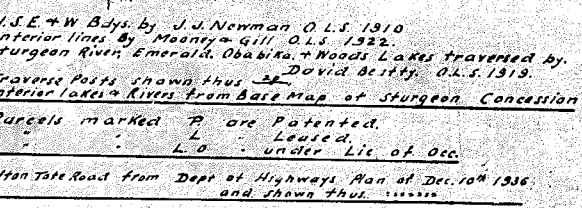 .S.E. & W Bdys. by J.J. Newman O.L.S. 1910
nterior lines By Mooney & Gill O.L.S. 1922.
turgeon River, Emerald, Obabika, & Woods Lakes traversed by.
David Beatty. O.L.S. 1919.
raverse Posts shown thus
nterior lakes & Rivers from Base Map of Sturgeon Concession
arcels marked P. are Patented.
" " L " Leased.
" " L O " under Lic. of Occ.
lton Tote Road from Dept of Highways Plan of Dec. 10th 1936
and shown thus.